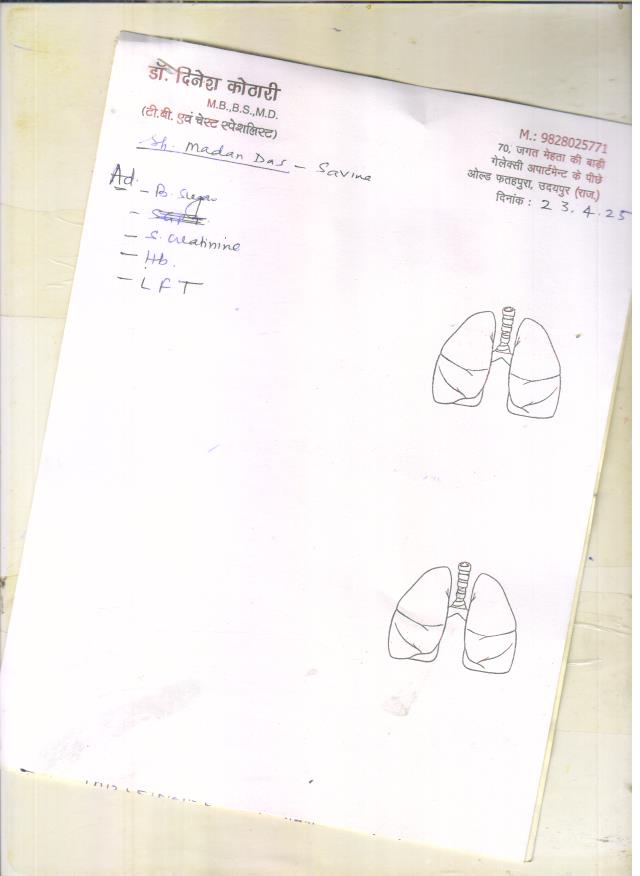 डॉ. दिनेश कोठारी
M.B.,B.S.,M.D.
(टी.बी. एवं चेस्ट स्पेशलिस्ट)
M.: 9828025771
70, जगत मेहता की बाड़ी
गेलेक्सी अपार्टमेन्ट के पीछे
ओल्ड फतहपुरा, उदयपुर (राज.)
दिनांक : 23.4.25
Sh. Madan Das - Savina
Ad.
- B. Sugar
- S. Creatinine
- Hb.
- LFT